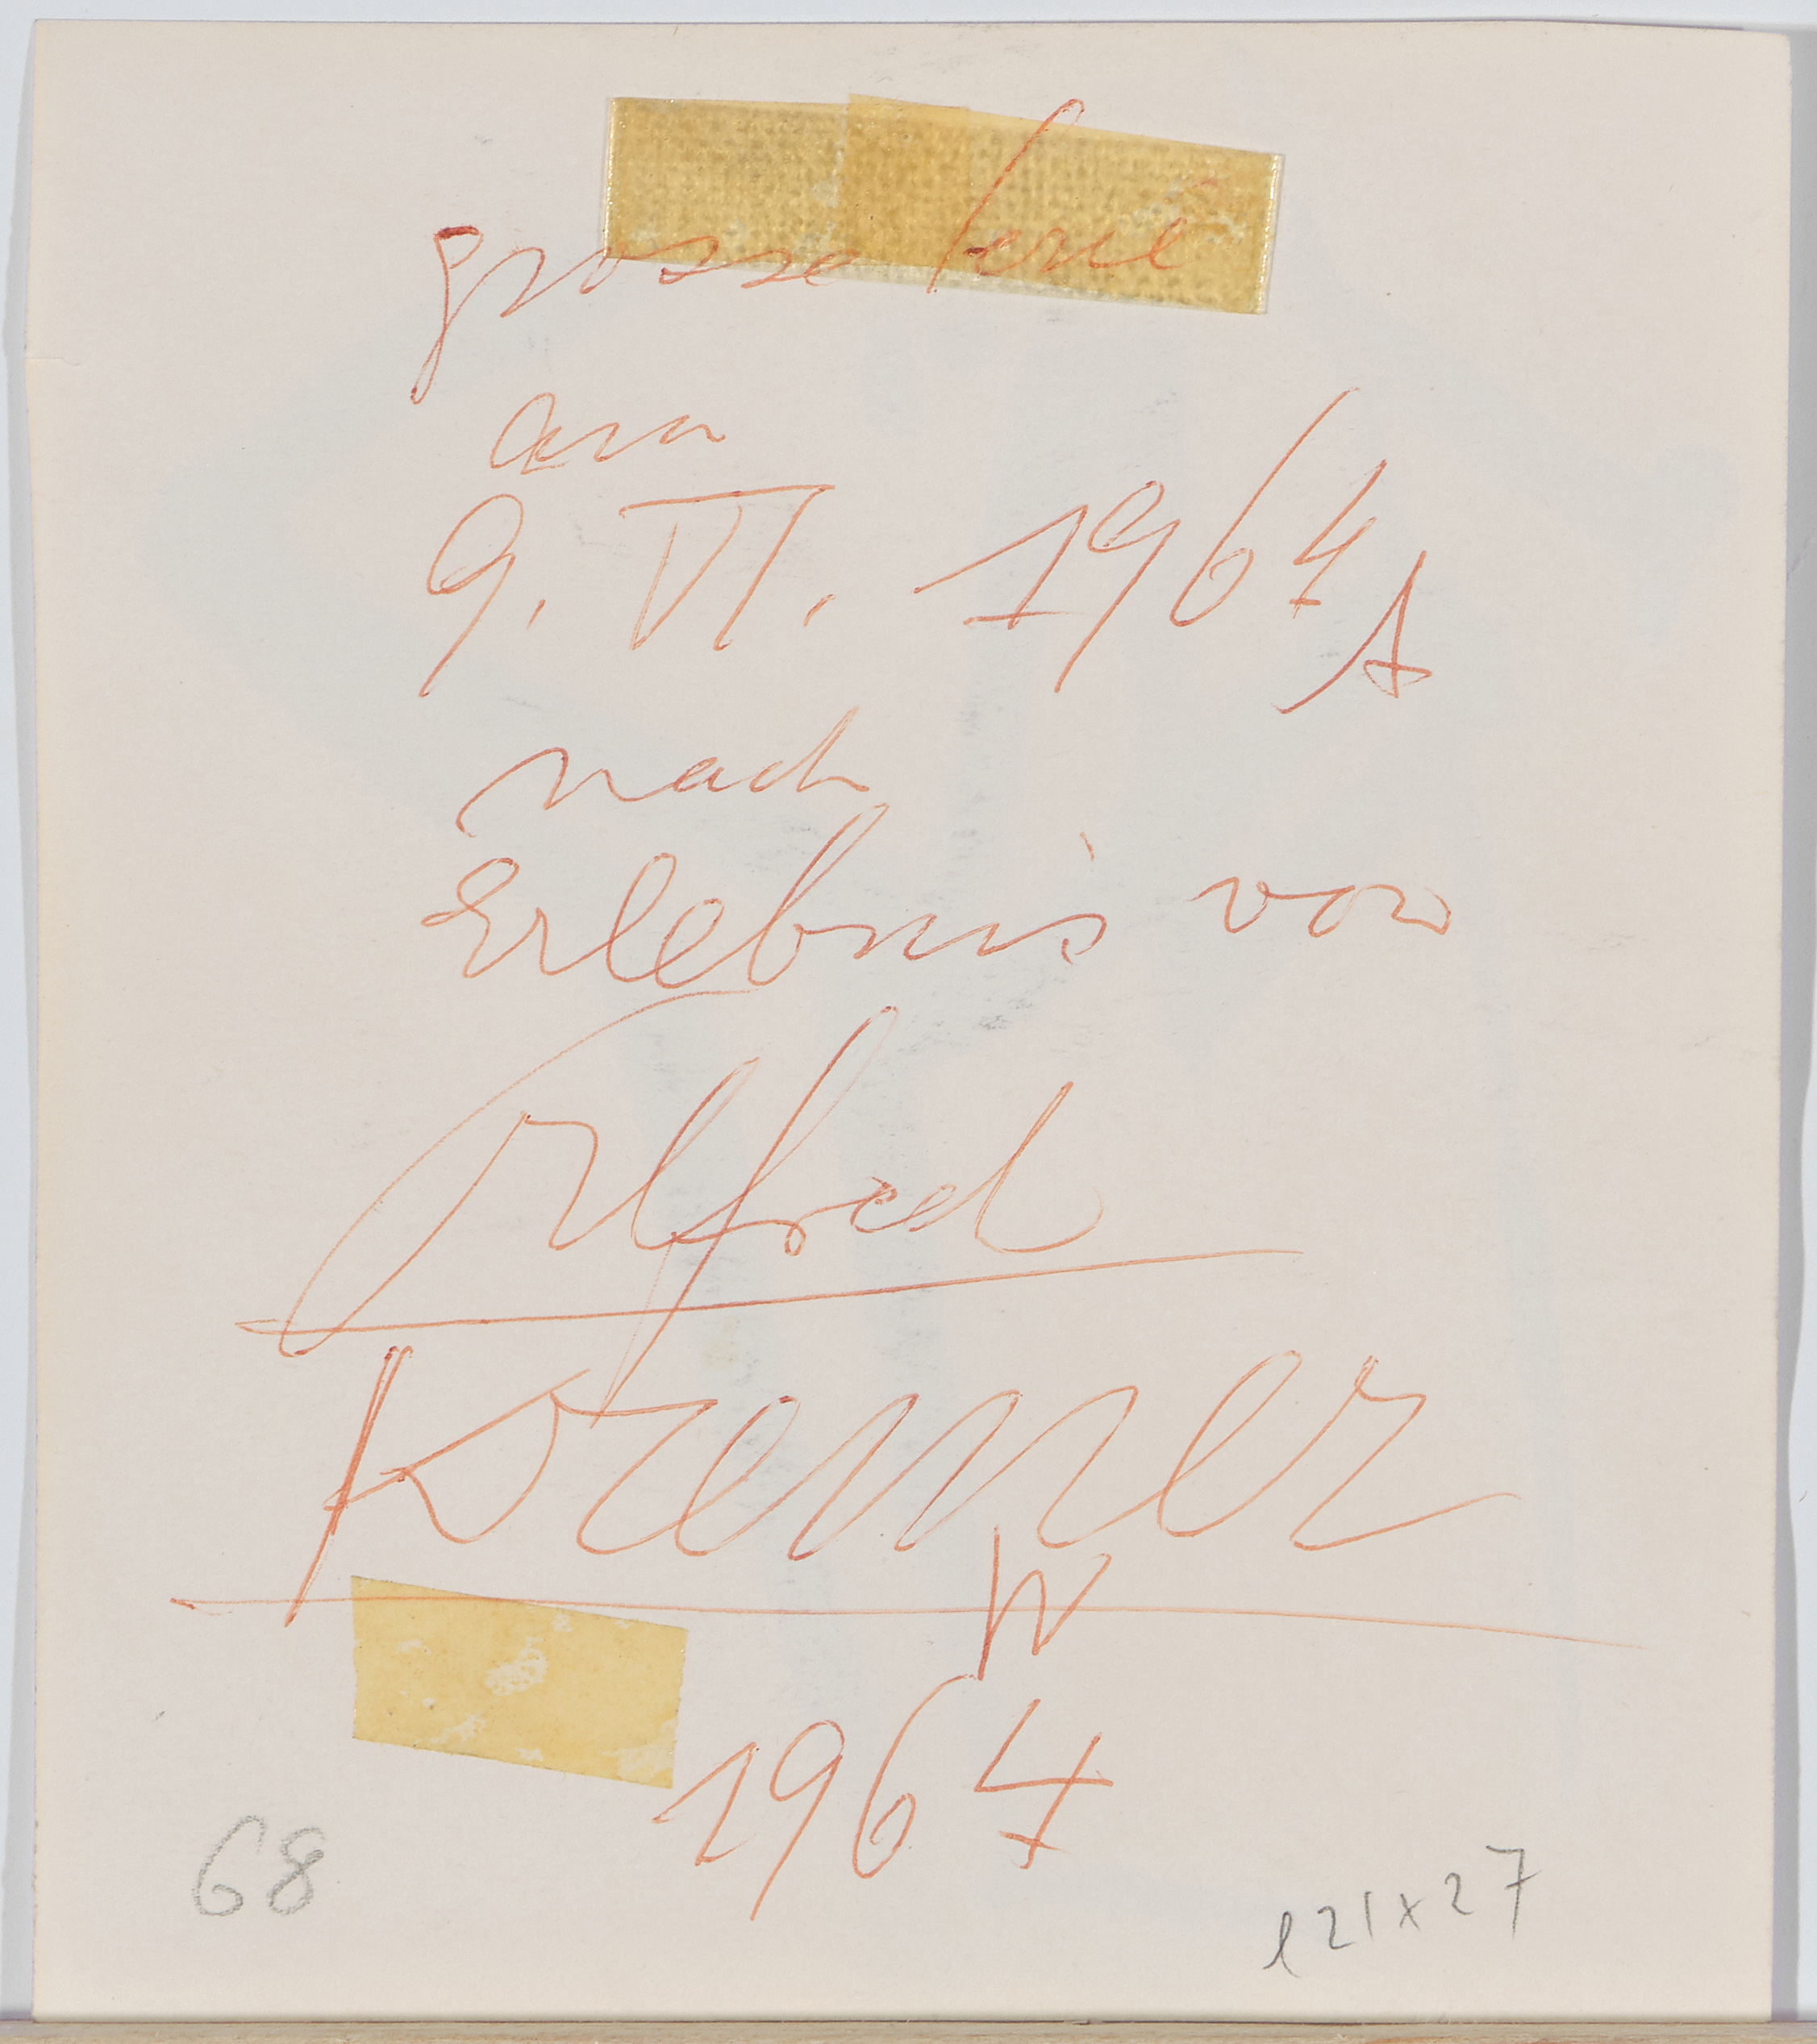 grosse serie
am
9. VI. 1964
nach
Erlebnis von
Alfred
Kremer
W
1964
68
21x27